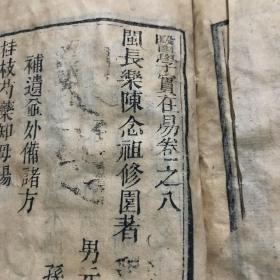 醫學實在易卷之八
閩長樂陳念祖修園著
男元
孫
補遺並外備諸方
桂枝芍藥知母湯